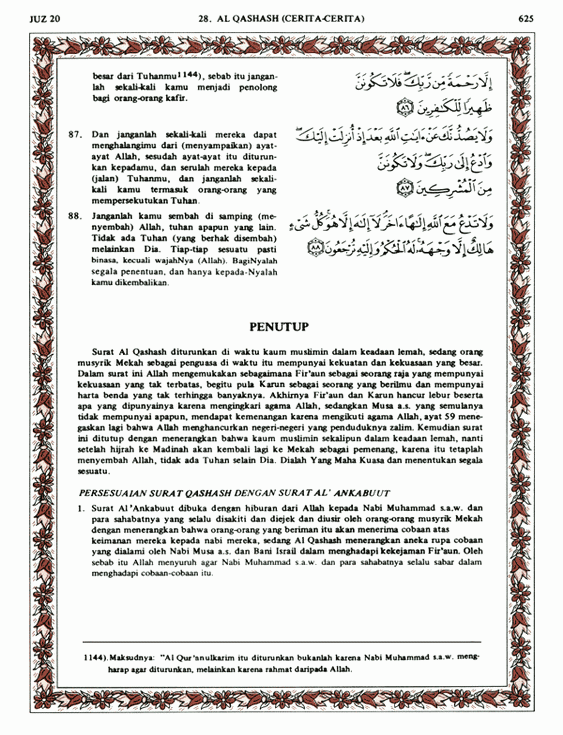 JUZ 20
28. AL QASHASH (CERITA-CERITA)
625
besar dari Tuhanmu1144), sebab itu jangan-
lah sekali-kali kamu menjadi penolong
bagi orang-orang kafir.
إِلَّا رَحْمَةً مِّن رَّبِّكَ ۖ فَلَا تَكُونَنَّ
ظَهِيرًا لِّلْكَٰفِرِينَ ٨٦
87. Dan janganlah sekali-kali mereka dapat
menghalangimu dari (menyampaikan) ayat-
ayat Allah, sesudah ayat-ayat itu diturun-
kan kepadamu, dan serulah mereka kepada
(jalan) Tuhanmu, dan janganlah sekali-
kali kamu termasuk orang-orang yang
mempersekutukan Tuhan.
وَلَا يَصُدُّنَّكَ عَنْ ءَايَٰتِ ٱللَّهِ بَعْدَ إِذْ أُنزِلَتْ إِلَيْكَ ۖ
وَٱدْعُ إِلَىٰ رَبِّكَ ۖ وَلَا تَكُونَنَّ
مِنَ ٱلْمُشْرِكِينَ ٨٧
88. Janganlah kamu sembah di samping (me-
nyembah) Allah, tuhan apapun yang lain.
Tidak ada Tuhan (yang berhak disembah)
melainkan Dia. Tiap-tiap sesuatu pasti
binasa, kecuali wajahNya (Allah). BagiNyalah
segala penentuan, dan hanya kepada-Nyalah
kamu dikembalikan.
وَلَا تَدْعُ مَعَ ٱللَّهِ إِلَٰهًا ءَاخَرَ ۘ لَآ إِلَٰهَ إِلَّا هُوَ ۚ كُلُّ شَىْءٍ
هَالِكٌ إِلَّا وَجْهَهُۥ ۚ لَهُ ٱلْحُكْمُ وَإِلَيْهِ تُرْجَعُونَ ٨٨
PENUTUP
Surat Al Qashash diturunkan di waktu kaum muslimin dalam keadaan lemah, sedang orang
musyrik Mekah sebagai penguasa di waktu itu mempunyai kekuatan dan kekuasaan yang besar.
Dalam surat ini Allah mengemukakan sebagaimana Fir'aun sebagai seorang raja yang mempunyai
kekuasaan yang tak terbatas, begitu pula Karun sebagai seorang yang berilmu dan mempunyai
harta benda yang tak terhingga banyaknya. Akhirnya Fir'aun dan Karun hancur lebur beserta
apa yang dipunyainya karena mengingkari agama Allah, sedangkan Musa a.s. yang semulanya
tidak mempunyai apapun, mendapat kemenangan karena mengikuti agama Allah, ayat 59 mene-
gaskan lagi bahwa Allah menghancurkan negeri-negeri yang penduduknya zalim. Kemudian surat
ini ditutup dengan menerangkan bahwa kaum muslimin sekalipun dalam keadaan lemah, nanti
setelah hijrah ke Madinah akan kembali lagi ke Mekah sebagai pemenang, karena itu tetaplah
menyembah Allah, tidak ada Tuhan selain Dia. Dialah Yang Maha Kuasa dan menentukan segala
sesuatu.
PERSESUAIAN SURAT QASHASH DENGAN SURAT AL' ANKABUUT
1. Surat Al'Ankabuut dibuka dengan hiburan dari Allah kepada Nabi Muhammad s.a.w. dan
para sahabatnya yang selalu disakiti dan diejek dan diusir oleh orang-orang musyrik Mekah
dengan menerangkan bahwa orang-orang yang beriman itu akan menerima cobaan atas
keimanan mereka kepada nabi mereka, sedang Al Qashash menerangkan aneka rupa cobaan
yang dialami oleh Nabi Musa a.s. dan Bani Israil dalam menghadapi kekejaman Fir'aun. Oleh
sebab itu Allah menyuruh agar Nabi Muhammad s.a.w. dan para sahabatnya selalu sabar dalam
menghadapi cobaan-cobaan itu.
1144).Maksudnya: "Al Qur'anulkarim itu diturunkan bukanlah karena Nabi Muhammad s.a.w. meng-
harap agar diturunkan, melainkan karena rahmat daripada Allah.